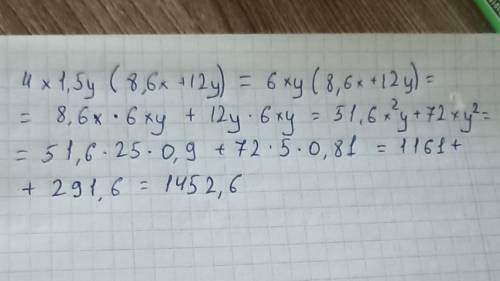 4x1,5y (8,6x+12y) = 6xy (8,6x+12y)=
= 8,6x · 6xy + 12y · 6xy = 51,6x²y+72xy²=
= 51,6 · 25 · 0,9 + 72 · 5 · 0,81 = 1161+
+ 291,6 = 1452,6